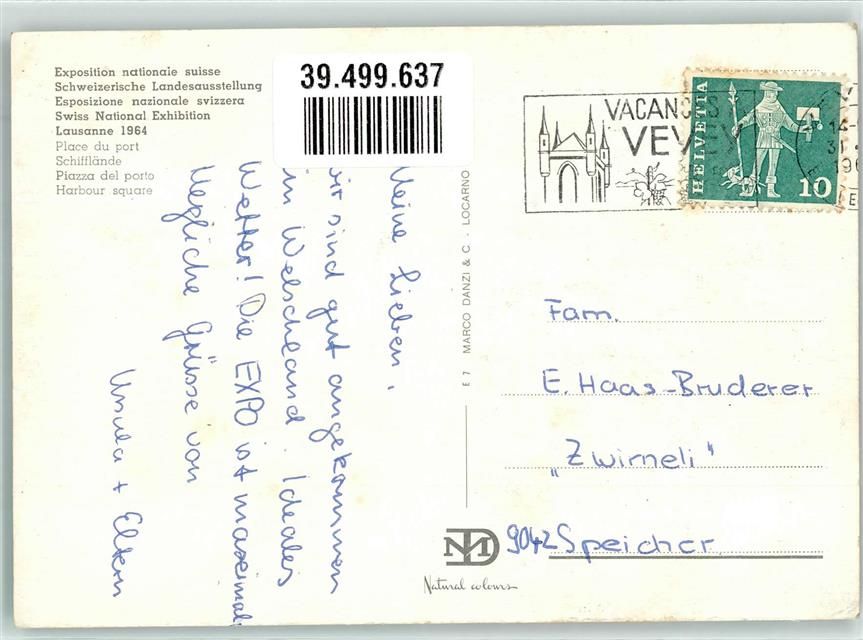 Exposition nationale suisse
Schweizerische Landesausstellung
Esposizione nazionale svizzera
Swiss National Exhibition
Lausanne 1964
Place du port
Schifflände
Piazza del porto
Harbour square
39.499.637
VACANCES
VEVEY
HELVETIA
10
14-
31
196
Meine Lieben,
wir sind gut angekommen
im Welschland. Ideales
Wetter! Die EXPO ist maximal
Herzliche Grüsse von
Ursula + Eltern
E 7 MARCO DANZI & C. LOCARNO
Fam.
E. Haas-Bruderer
„Zwirneli"
9042 Speicher
MD
Natural colours